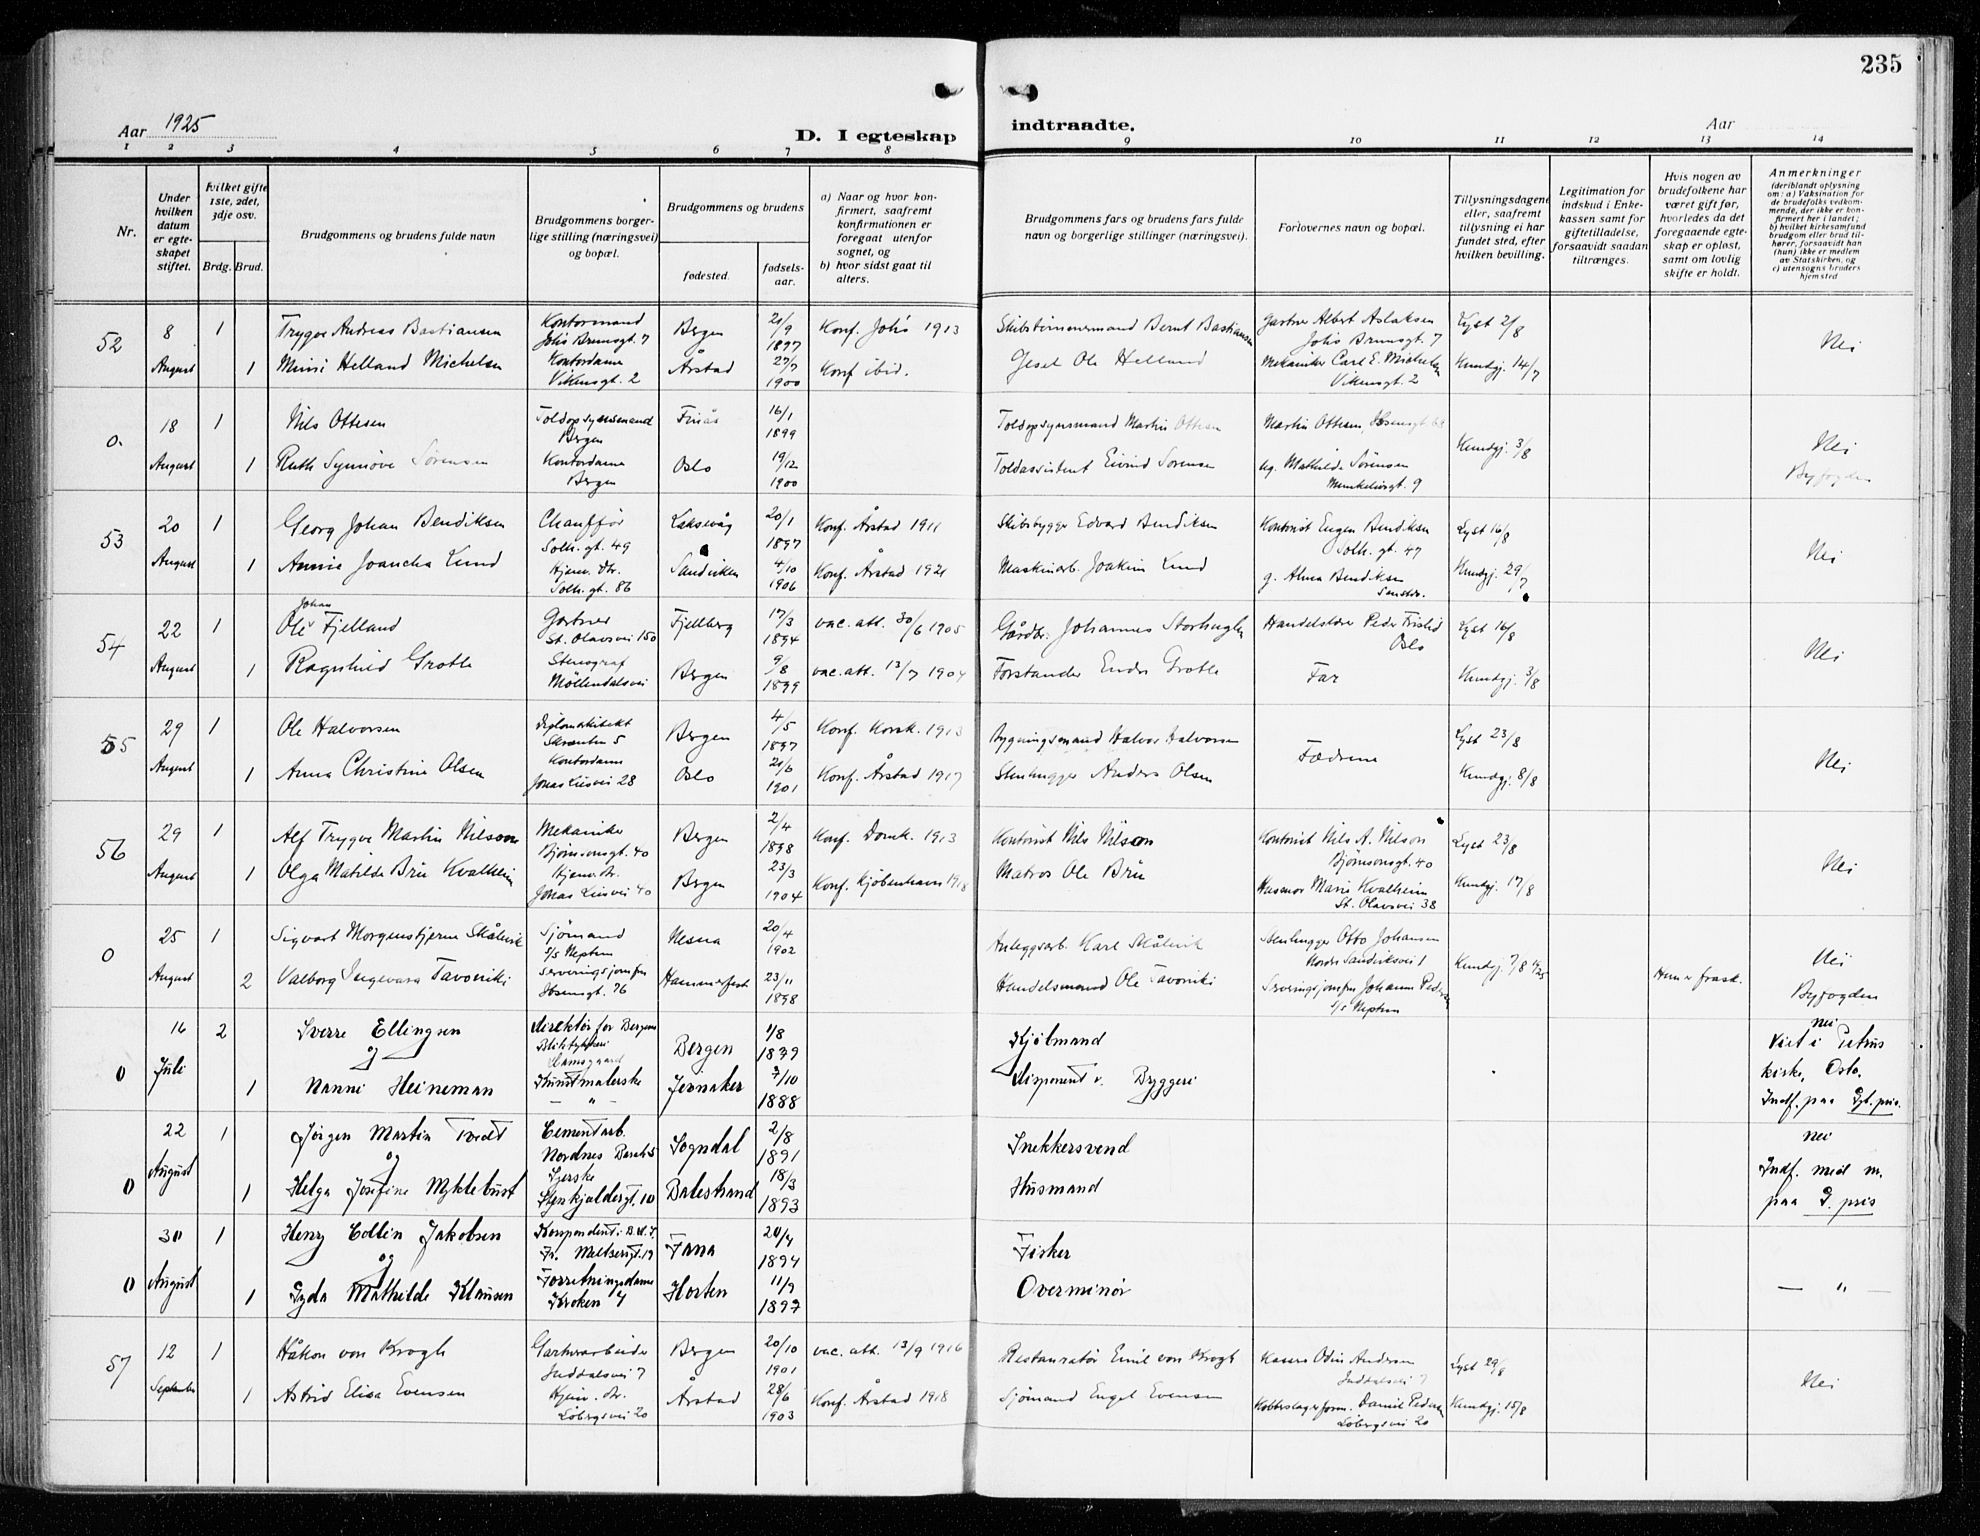 235
Aar 1925
D. I egteskap indtraadte.
Aar
1 2 3 4 5 6 7 8 9 10 11 12 13 14
Nr.
Under hvilken datum er egteskapet stiftet.
hvilket gifte 1ste, 2det, 3dje osv.
Brdg. Brud.
Brudgommens og brudens fulde navn
Brudgommens borgerlige stilling (næringsvei) og bopæl.
Brudgommens og brudens
fødested.
fødselsaar.
a) Naar og hvor konfirmert, saafremt konfirmationen er foregaat utenfor sognet, og
b) hvor sidst gaat til alters.
Brudgommens fars og brudens fars fulde navn og borgerlige stillinger (næringsvei).
Forlovernes navn og bopæl.
Tillysningsdagene eller, saafremt tillysning ei har fundet sted, efter hvilken bevilling.
Legitimation for indskud i Enkekassen samt for giftetilladelse, forsaavidt saadan tiltrænges.
Hvis nogen av brudefolkene har været gift før, hvorledes da det foregaaende egteskap er opløst, samt om lovlig skifte er holdt.
Anmerkninger
(deriblandt oplysning om: a) Vaksination for de brudefolks vedkommende, der ikke er konfirmert her i landet; b) hvilket kirkesamfund brudgom eller brud tilhører, forsaavidt han (hun) ikke er medlem av Statskirken, og c) utensogns bruders hjemsted
52 8 August 1 Trygve Andreas Bastiansen Kontormand Johs Brunsgt. 7 Bergen 21/9 1897 Konf. Johs 1913 Skibstimmermand Bernt Bastiansen Gartner Albert Aslaksen Johs Brunsgt. 7 Lyst 2/8 Nei
1 Mimi Helland Michelsen Kontordame Vikensgt. 2 Årstad 27/7 1900 Konf ibid. Gesel Ole Helland Mekaniker Carl E. Michelsen Vikensgt. 2 Kundgj. 14/7
0. 18 August 1 Nils Ottesen Toldopsynsmand Bergen Finås 16/1 1899 Toldopsynsmand Martin Ottesen Martin Ottesen, Ibsensgt 68 Kundgj. 3/8 Nei
1 Ruth Synnøve Sørensen Kontordame Bergen Oslo 19/12 1900 Toldassistent Eivind Sørensen Mathilde Sørensen Munkelivsgt. 9 Byfogden
53 20 August 1 Georg Johan Bendiksen Chauffør Solh. gt. 49 Laksevåg 20/1 1897 Konf. Årstad 1911 Skibsbygger Edvard Bendiksen Kontorist Eugen Bendiksen Solh. gt. 47 Lyst 16/8 Nei
1 Annie Joancha Lund Hjemv. dtr. Solh. gt. 86 Sandviken 4/10 1906 Konf. Årstad 1921 Maskinarb. Joakim Lund g. Alma Bendiksen Kundgj. 29/7
54 22 August Ole Johan Fjelland Gartner St. Olavsvei 150 Fjellberg 17/3 1894 vac. att. 30/6 1905 Gårdbr. Johannes Handelslærer Peder Oslo Lyst 16/8 Nei
1 Ragnhild Grotle Stenograf Møllendalsvei Bergen 9/8 1899 vac. att. 13/7 1904 Forstander Endre Grotle Far Kundgj. 3/8
55 29 August 1 Ole Halvorsen Diplomarkitekt Skrenten 5 Bergen 4/5 1897 Konf. Korsk. 1913 Bygningsmand Halvor Halvorsen Fædrene Lyst 23/8 Nei
1 Anna Christine Olsen Kontordame Jonas Liesvei 28 Oslo 21/6 1901 Konf. Årstad 1917 Stenhugger Anders Olsen Kundgj. 8/8
56 29 August 1 Alf Trygve Martin Nilsson Mekaniker Bjørnsonsgt. 40 Bergen 2/4 1898 Konf. Domk. 1913 Kontorist Nils Nilsson Kontorist Nils A. Nilson Bjørnsonsgt. 40 Lyst 23/8 Nei
1 Olga Matilde Brü Kvalheim Hjemv. dtr. Jonas Liesvei 40 Bergen 23/3 1904 Konf. Kjøbenhavn 1918 Matros Ole Brü Husmor Marie Kvalheim St. Olavsvei 38 Kundgj. 17/8
0 25 August 1 Sigvart Morgenstjerne Skålevik Sjømand S/S Neptun Nesna 20/4 1902 Anleggsarb. Karl Skålvik Stenhugger Otto Johansen Nordre Sandviksvei 1 Kundgj. 7/8 Hun er frask. Nei
2 Valborg Ingevara Tavoniki Serveringsjomfru Ibsensgt. 76 Hammerfest 23/11 1898 Handelsmand Ole Tavoniki Serveringsjomfru Johanne Pedersen S/S Neptun Byfogden
0 16 Juli 2 Sverre Ellingsen Direktør for Bergens Blikktrykkeri Damsgaard Bergen 1/8 1879 Kjølmand nei Viet i Petrus kirke, Oslo.
og
1 Nanni Heineman Kunstmalerske — " — Jevnaker 7/10 1888 Disponent v. Byggeri Indf. paa Gyl. pris.
0 22 August 1 Jørgen Martin Tvedt Cementarb. Nordnes Sogndal 2/8 1891 Snekkersvend nei
og
1 Helga Josefine Myklebust Syerske Stenkjeldergt. 10 Balestrand 18/3 1893 Husmand Indf. med m. paa G. pris
0 30 August 1 Henry Collin Jakobsen Korrespondent i B.M.T. Fr. Meltzersgt. 19 Fana 20/4 1894 Fisker
og
1 Gyda Mathilde Klausen Forretningsdame Kroken 4 Horten 11/9 1897 Overminør — " —
57 12 September 1 Håkon von Krogh Gartnerarbeider Inddalsvei 7 Bergen 20/10 1901 vac. att. 13/9 1916 Restauratør Emil von Krogh Kasser Odin Andersen Inddalsvei 7 Lyst 29/8 Nei
1 Astrid Elisa Evensen Hjemv. dtr. Løbergsvei 20 Årstad 28/6 1903 Konf. Årstad 1918 Sjømand Engel Evensen Kobberslagerform. Daniel Pedersen Løbergsvei 20 Kundgj. 15/8